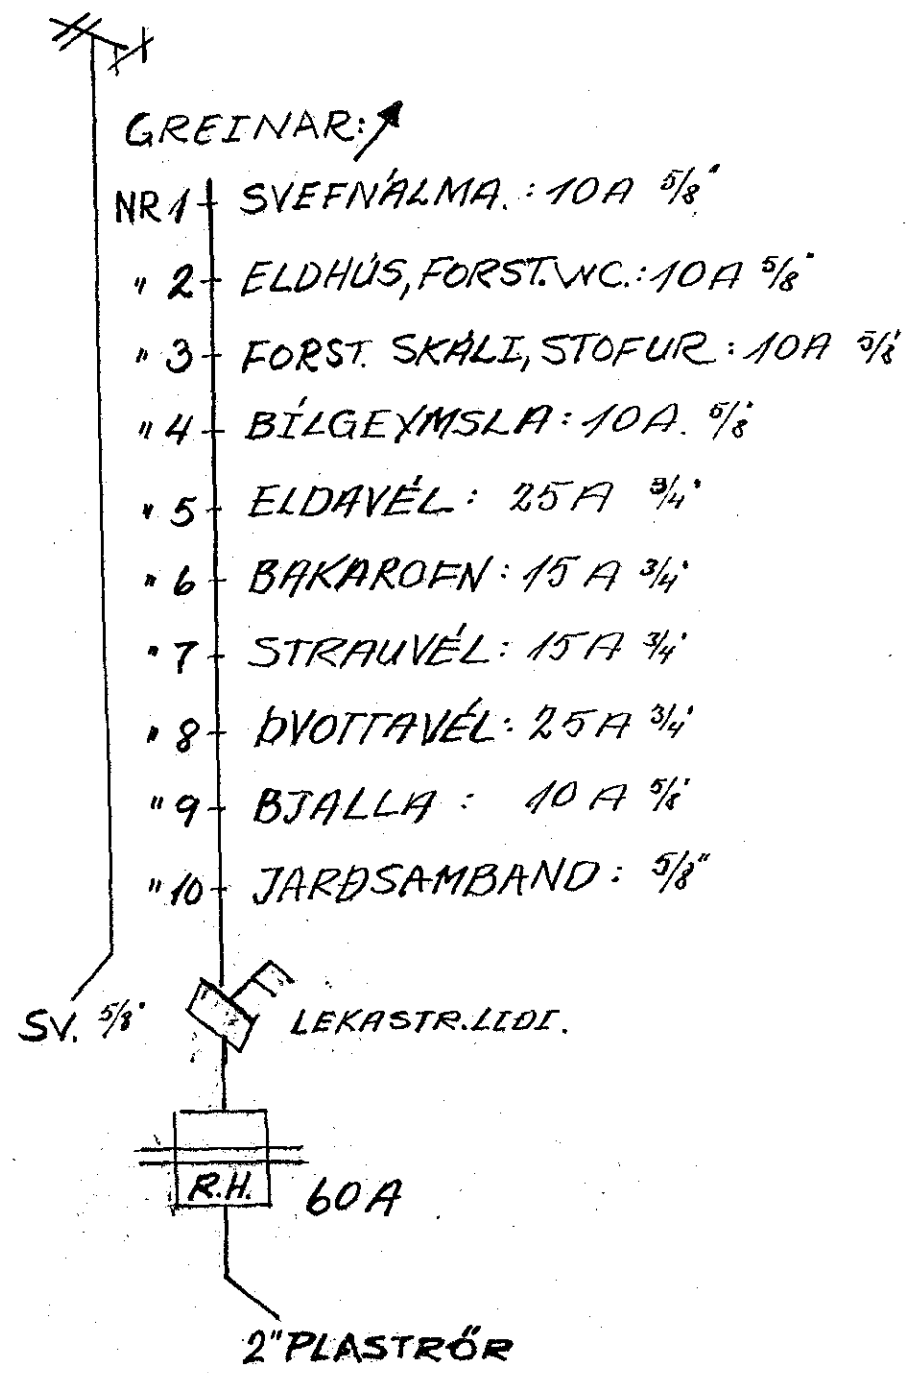 GREINAR:
NR 1 SVEFNÁLMA. : 10A 5/8"
" 2 ELDHÚS, FORST. WC.: 10A 5/8"
" 3 FORST. SKÁLI, STOFUR: 10A 5/8"
" 4 BÍLGEYMSLA: 10A. 5/8"
" 5 ELDAVÉL: 25A 3/4"
" 6 BAKAROFN: 15A 3/4"
" 7 STRAUVÉL: 15A 3/4"
" 8 ÞVOTTAVÉL: 25A 3/4"
" 9 BJALLA: 10A 5/8"
" 10 JARÐSAMBAND: 5/8"
SV. 5/8"
LEKASTR.LIÐI.
R.H. 60A
2" PLASTRÖR